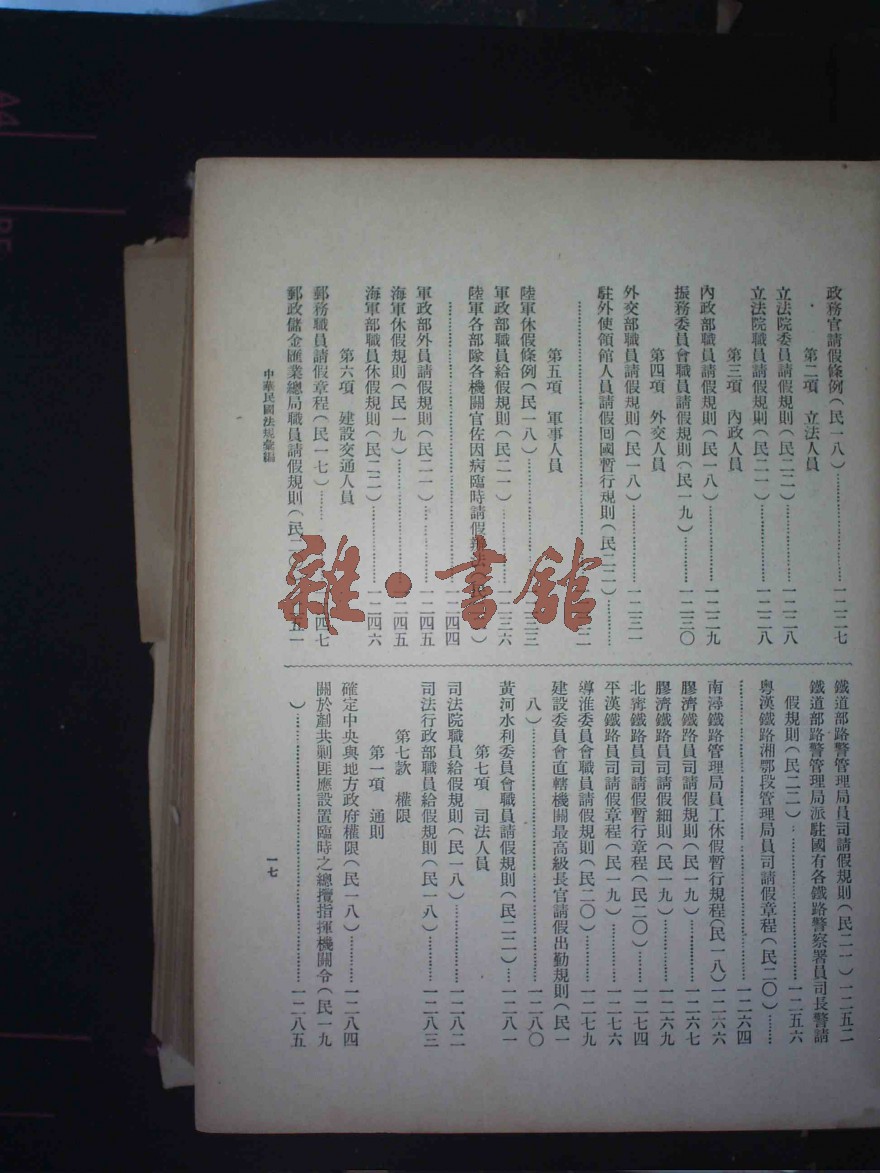 政務官請假條例(民一八)……一二二七
第二項 立法人員
立法院委員請假規則(民二二)……一二二八
立法院職員請假規則(民二一)……一二二八
第三項 內政人員
內政部職員請假規則(民一八)……一二二九
振務委員會職員請假規則(民一九)……一二三〇
第四項 外交人員
外交部職員請假規則(民一八)……一二三一
駐外使領館人員請假回國暫行規則(民二二)……
第五項 軍事人員
陸軍休假條例(民一八)……三三
軍政部職員給假規則(民二一)……一二三六
陸軍各部隊各機關官佐因病臨時請假
……四四
軍政部外員請假規則(民二一)……一二四五
海軍休假規則(民一九)……二四五
海軍部職員休假規則(民二二)……一二四六
第六項 建設交通人員
郵務職員請假章程(民一七)……四七
郵政儲金匯業總局職員請假規則(民二
鐵道部路警管理局員司請假規則(民二一)一二五二
鐵道部路警管理局派駐國有各鐵路警察署員司長警請
假規則(民二二)……一二五六
粵漢鐵路湘鄂段管理局員司請假章程(民二〇)……
……一二六四
南潯鐵路管理局員工休假暫行規程(民一八)一二六六
膠濟鐵路員司請假規則(民一九)……一二六七
膠濟鐵路員司請假細則(民一九)……一二六九
北寧鐵路員司請假暫行章程(民二〇)……一二七四
平漢鐵路員司請假章程(民一九)……一二七六
導淮委員會職員請假規則(民二〇)……一二七九
建設委員會直轄機關最高級長官請假出勤規則(民一
八)……一二八〇
黃河水利委員會職員請假規則(民二二)…一二八一
第七項 司法人員
司法院職員給假規則(民一八)……一二八二
司法行政部職員給假規則(民一八)……一二八三
第七款 權限
第一項 通則
確定中央與地方政府權限(民一八)……一二八四
關於剷共剿匪應設置臨時之總攬指揮機關令(民一九
)……一二八五
中華民國法規彙編
一七
雜·書館